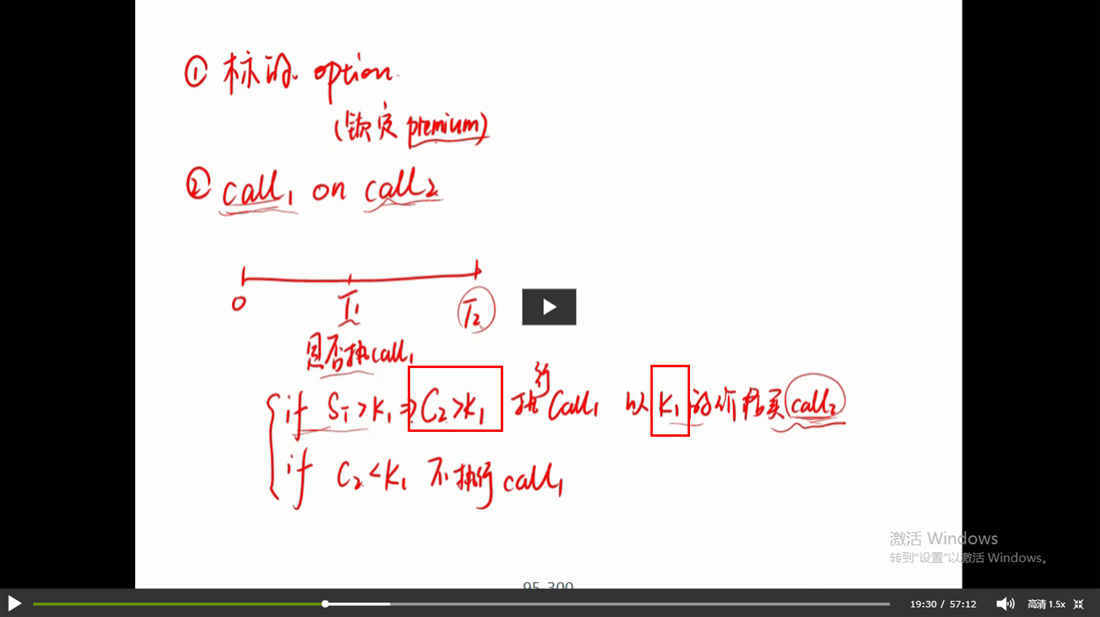 ① 标的 option.
(锁定 premium)
② call₁ on call₂
0 T₁ T₂
是否执call₁
if S_T>K₁ ⇒ C₂>K₁ 执行 Call₁ 以 K₁ 的价格买 call₂
if C₂<K₁ 不执行 call₁
激活 Windows
转到“设置”以激活 Windows。
95-300
19:30 / 57:12 高清 1.5x